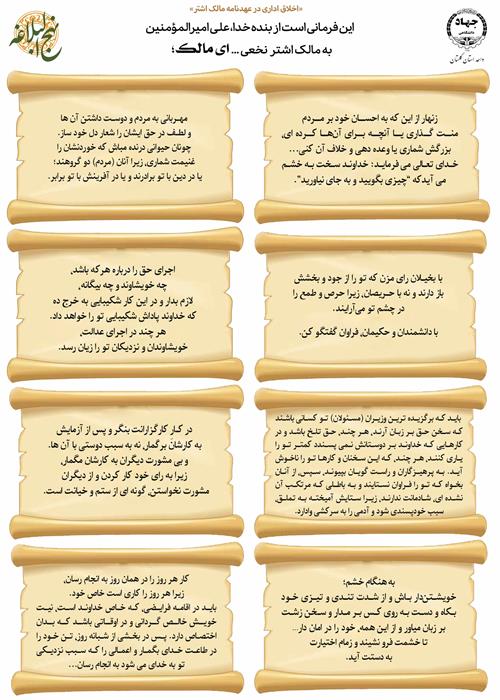 «اخلاق اداری در عهدنامه مالک اشتر»
این فرمانی است از بنده خدا، علی امیرالمؤمنین
به مالک اشتر نخعی ... ای مالک؛
جهاد
دانشگاهی
واحد استان گلستان
نهج البلاغه
زنهار از این که به احسان خود بر مردم
منت گذاری یا آنچه برای آن‌ها کرده ای،
بزرگش شماری یا وعده دهی و خلاف آن کنی...
خدای تعالی می‌فرماید: خداوند سخت به خشم
می آید که "چیزی بگویید و به جای نیاورید".
مهربانی به مردم و دوست داشتن آن ها
و لطف در حق ایشان را شعار دل خود ساز.
چونان حیوانی درنده مباش که خوردنشان را
غنیمت شماری، زیرا آنان (مردم) دو گروهند؛
یا در دین با تو برادرند و یا در آفرینش با تو برابر.
با بخیلان رای مزن که تو را از جود و بخشش
باز دارند و نه با حریصان، زیرا حرص و طمع را
در چشم تو می‌آرایند.
با دانشمندان و حکیمان، فراوان گفتگو کن.
اجرای حق را درباره هرکه باشد،
چه خویشاوند و چه بیگانه،
لازم بدار و در این کار شکیبایی به خرج ده
که خداوند پاداش شکیبایی تو را خواهد داد.
هر چند در اجرای عدالت،
خویشاوندان و نزدیکان تو را زیان رسد.
باید که برگزیده ترین وزیران (مسئولان) تو کسانی باشند
که سخن حق بر زبان آرند، هر چند، حق تلخ باشد و در
کارهایی که خداوند بر دوستانش نمی پسندد کمتر تو را
یاری کنند، هر چند، که این سخنان و کارها تو را ناخوش
آید. به پرهیزگاران و راست گویان بپیوند، سپس، از آنان
بخواه که تو را فراوان نستایند و به باطلی که مرتکب آن
نشده ای، شادمانت ندارند، زیرا ستایش آمیخته به تملق،
سبب خودپسندی شود و آدمی را به سرکشی وادارد.
در کار کارگزارانت بنگر و پس از آزمایش
به کارشان برگمار، نه به سبب دوستی با آن ها.
و بی مشورت دیگران به کارشان مگمار،
زیرا به رای خود کار کردن و از دیگران
مشورت نخواستن، گونه ای از ستم و خیانت است.
به هنگام خشم؛
خویشتن‌دار باش و از شدت تندی و تیزی خود
بکاه و دست به روی کس بر مدار و سخن زشت
بر زبان میاور و از این همه، خود را در امان دار...
تا خشمت فرو نشیند و زمام اختیارت
به دستت آید.
کار هر روز را در همان روز به انجام رسان،
زیرا هر روز را کاری است خاص خود.
باید در اقامه فرایضی، که خاص خداوند است، نیت
خویش خالص گردانی و در اوقاتی باشد که بدان
اختصاص دارد. پس در بخشی از شبانه روز، تن خود را
در طاعت خدای بگمار و اعمالی را که سبب نزدیکی
تو به خدای می شود به انجام رسان...